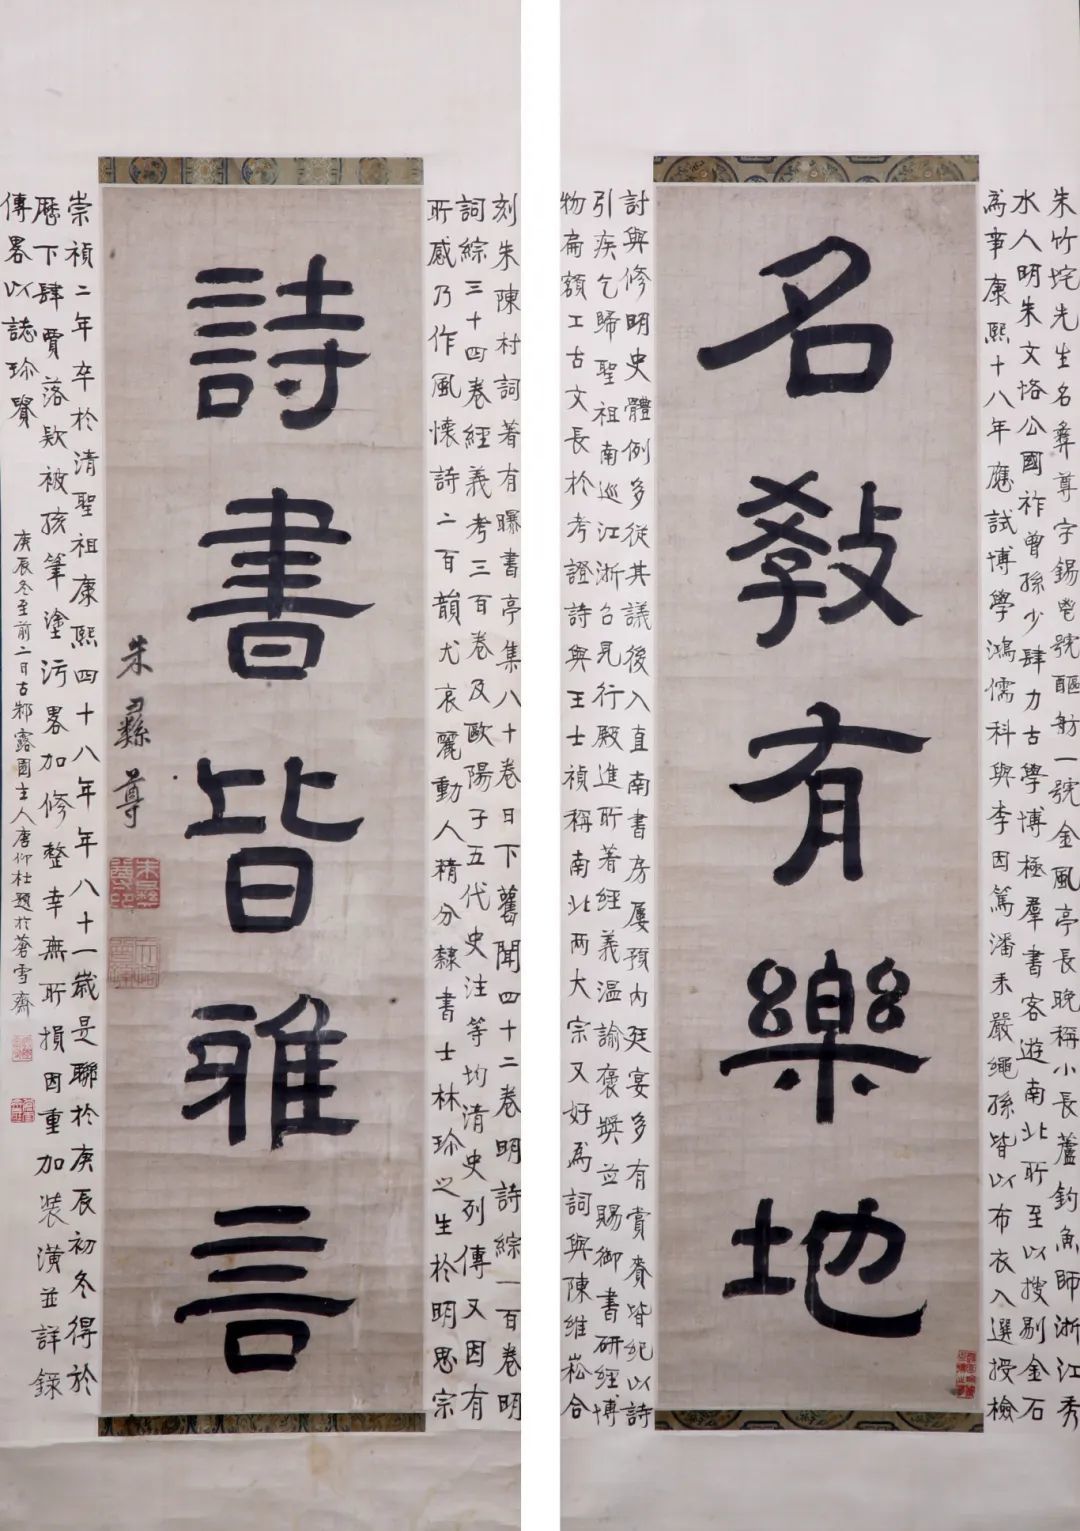 朱竹垞先生名彝尊字錫鬯號醧舫一號金風亭長晚稱小長蘆釣魚師浙江秀
水人明朱文恪公國祚曾孫少肆力古學博極羣書客遊南北所至以搜剔金石
為事康熙十八年應試博學鴻儒科與李因篤潘耒嚴繩孫皆以布衣入選授檢
名教有樂地
討與修明史體例多從其議後入直南書房屢預內廷宴多有賞賚皆紀以詩
引疾乞歸聖祖南巡江浙召見行殿進所著經義溫諭褒獎並賜御書研經博
物扁額工古文長於考證詩與王士禎稱南北两大宗又好為詞與陳維崧合
刻朱陳村詞著有曝書亭集八十卷日下舊聞四十二卷明詩綜一百卷明
詞綜三十四卷經義考三百卷及歐陽子五代史注等均清史列傳又因有
所感乃作風懷詩二百韻尤哀麗動人精分隸書士林珍之生於明思宗
詩書皆雅言
朱彝尊
崇禎二年卒於清聖祖康熙四十八年年八十一歲是聯於庚辰初冬得於
曆下肆賈落欵被孩筆塗污畧加修整幸無所損因重加裝潢並詳錄
傳畧以誌珍
庚辰冬至前二日古邾露園主人唐仰杜題於蒼雪齋